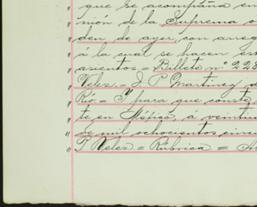 " que se acompaña en
" misión de la Suprema o
" den de ayer, con arreg
" á la cual se hacen es
" asientos = Billete nº 228
" Velez = J. P. Martinez d
" Rio = Y para que conste
" te en Méjico, á veintiu
" de mil ochocientos cincu
" J Velez = Rúbrica =